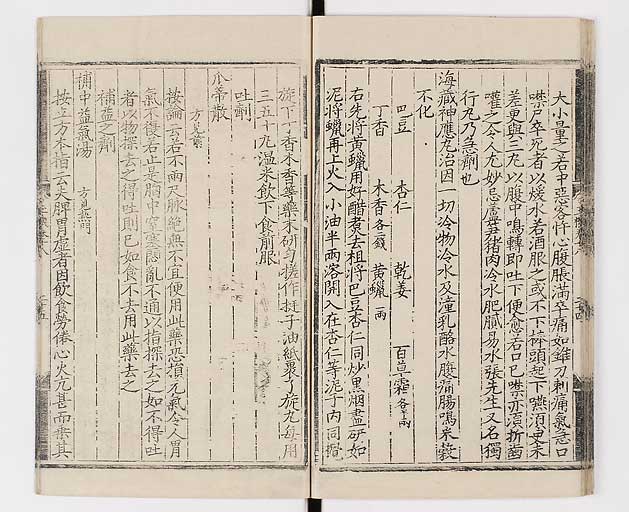 大小量之若中惡客忤心腹脹滿卒痛如錐刀刺痛氣急口
噤尸卒死者以煖水若酒服之或不下捧頭起下嚥須臾未
差更與三丸以腹中鳴轉即吐下便愈若口已噤亦須折齒
灌之令入尤妙忌蘆笋猪肉冷水肥膩易水張先生又名獨
行丸乃急劑也
海藏神應丸治因一切冷物冷水及潼乳酪水腹痛腸鳴米穀
不化
巴豆 杏仁 乾姜 百草霜各一兩
丁香 木香各二錢 黃蠟 兩
右先將黃蠟用好醋煮去柤將巴豆杏仁同炒黑烟盡研如
泥將蠟再上火入小油半兩溶開入在杏仁等泥子內同攪
旋下丁香木香等藥末研勻搓作挺子油紙裹了旋丸每用
三五十丸溫米飲下食前服
吐劑
瓜蔕散 方見
按論云若不兩尺脉絶無不宜便用此藥恐損元氣令人胃
氣不復若止是胸中窒塞悶亂不通以指探去之如不得吐
者以物探去之得吐則已如食不去用此藥去之
補益之劑
補中益氣湯 方見 門
按立方本指云夫脾胃虛者因飲食勞倦心火亢甚而乘其